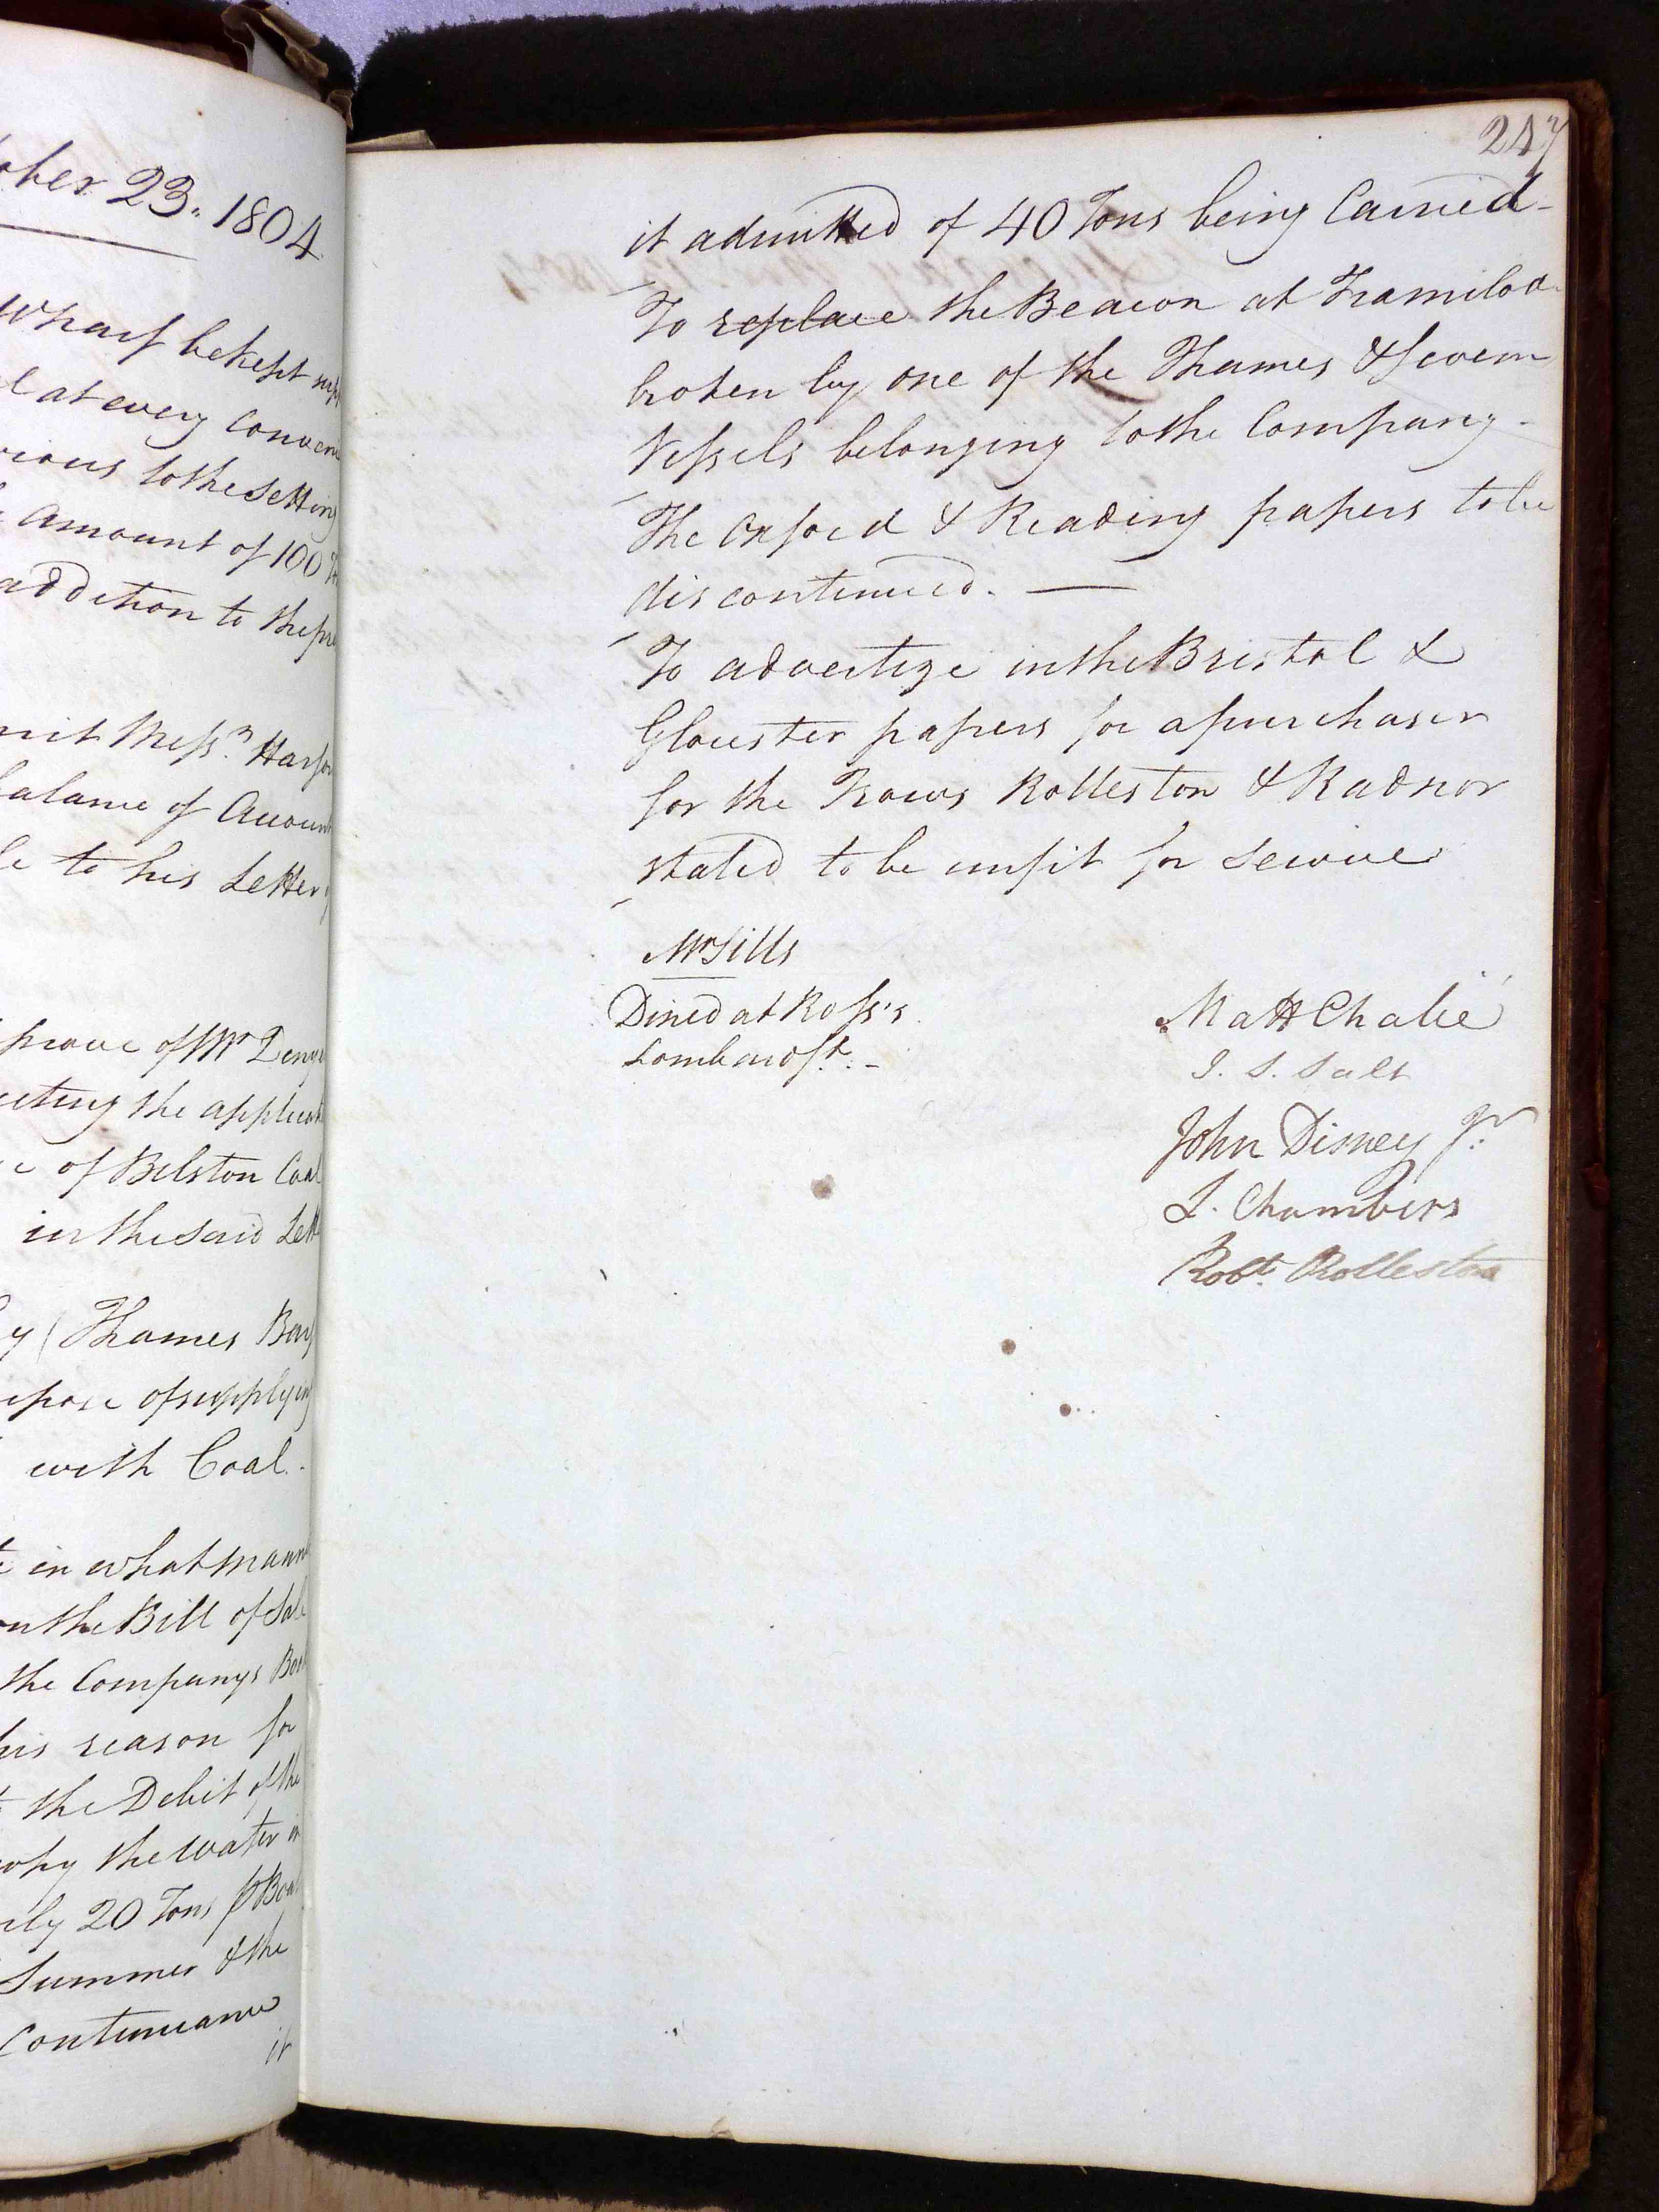 ober 23. 1804
Wharf be kept
l at every conveni
rious to the setting
amount of 100
addition to the pre
mit Messrs. Harfor
balance of Account
le to his Letter
prove of Mr Deny
cting the applicat
e of Bilston Coal
in the said Lett
y Thames Barg
rpose of supplying
with Coal.
in what mann
on the Bill of Sal
the Companys Boa
his reason for
the Debit of the
why the water in
ily 20 Tons pr Boat
Summer & the
Continuance
it
247
it admitted of 40 Tons being Carried-
To replace the Beacon at Framilod
broken by one of the Thames & Severn
Vessels belonging to the Company.
The Oxford & Reading papers to be
discontinued. —
To advertize in the Bristol &
Glouester papers for a purchaser
for the Trows Rolleston & Radnor
stated to be unfit for Service
Mr Sills
Dined at Ross's
Lombard St. -
Matt Chalié
J. S. Salt
John Disney Jr.
J. Chambers
Robt. Rolleston